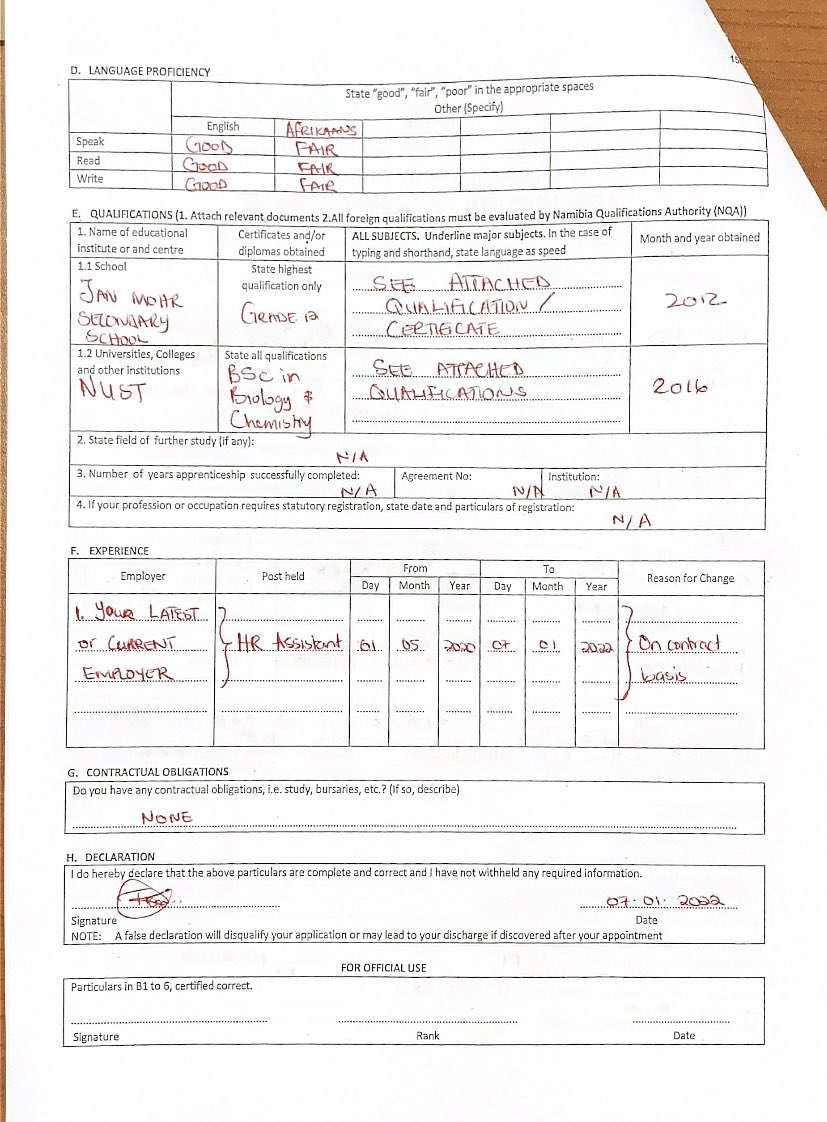 15
D. LANGUAGE PROFICIENCY
State "good", "fair", "poor" in the appropriate spaces
Other (Specify)
English AFRIKAANS
Speak GOOD FAIR
Read GOOD FAIR
Write GOOD FAIR
E. QUALIFICATIONS (1. Attach relevant documents 2.All foreign qualifications must be evaluated by Namibia Qualifications Authority (NQA))
1. Name of educational institute or and centre
Certificates and/or diplomas obtained
ALL SUBJECTS. Underline major subjects. In the case of typing and shorthand, state language as speed
Month and year obtained
1.1 School
JAN MOHR
SECONDARY
SCHOOL
State highest
qualification only
GRADE 12
SEE ATTACHED
QUALIFICATION /
CERTIFICATE
2012
1.2 Universities, Colleges
and other Institutions
NUST
State all qualifications
BSc in
Biology &
Chemistry
SEE ATTACHED
QUALIFICATIONS
2016
2. State field of further study (if any):
N/A
3. Number of years apprenticeship successfully completed: Agreement No: Institution:
N/A N/A N/A
4. If your profession or occupation requires statutory registration, state date and particulars of registration:
N/A
F. EXPERIENCE
Employer Post held From To Reason for Change
Day Month Year Day Month Year
1. YOUR LATEST
or CURRENT HR Assistant 01 05 2020 07 01 2022 On contract
EMPLOYER basis
G. CONTRACTUAL OBLIGATIONS
Do you have any contractual obligations, i.e. study, bursaries, etc.? (If so, describe)
NONE
H. DECLARATION
I do hereby declare that the above particulars are complete and correct and I have not withheld any required information.
07.01.2022
Signature Date
NOTE: A false declaration will disqualify your application or may lead to your discharge if discovered after your appointment
FOR OFFICIAL USE
Particulars in B1 to 6, certified correct.
Signature Rank Date